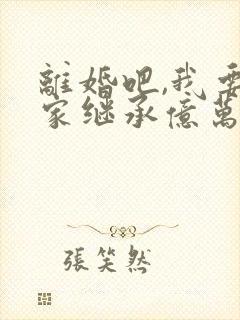 離婚吧,我要
家继承億萬
張笑然